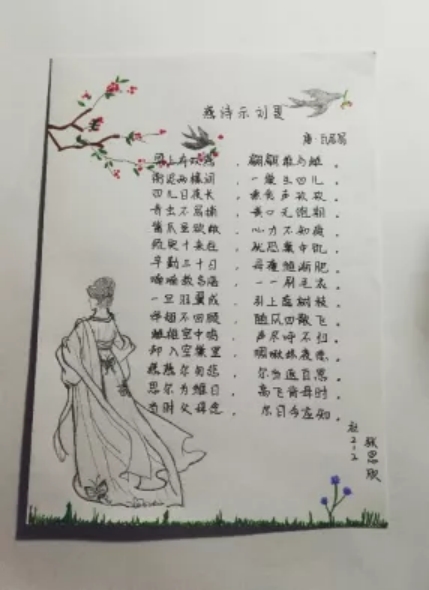 燕诗示刘叟
唐·白居易
梁上有双燕，翩翩雄与雌。
衔泥两椽间，一巢生四儿。
四儿日夜长，索食声孜孜。
青虫不易捕，黄口无饱期。
嘴爪虽欲敝，心力不知疲。
须臾十来往，犹恐巢中饥。
辛勤三十日，母瘦雏渐肥。
喃喃教言语，一一刷毛衣。
一旦羽翼成，引上庭树枝。
举翅不回顾，随风四散飞。
雌雄空中鸣，声尽呼不归。
却入空巢里，啁啾终夜悲。
燕燕尔勿悲，尔当返自思。
思尔为雏日，高飞背母时。
当时父母念，日今应知。
2-2
张思